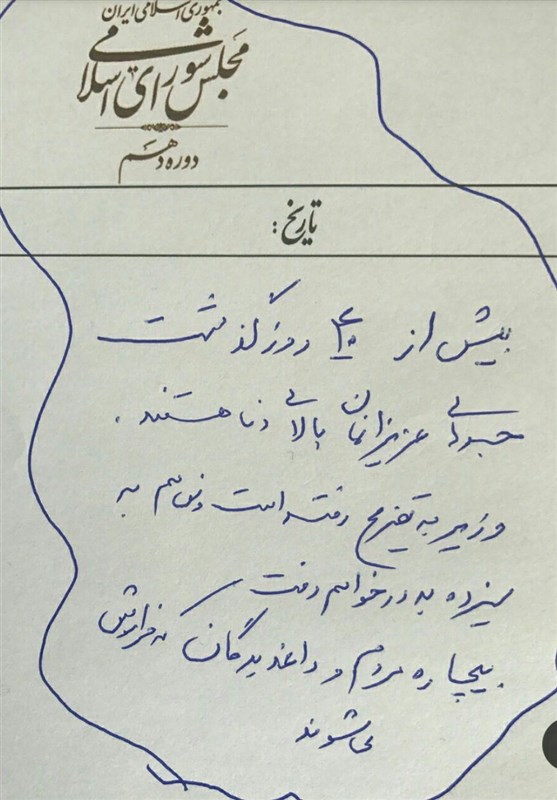 جمهوری اسلامی ایران
مجلس شورای اسلامی
دوره دهم
تاریخ:
بیش از ۴۰ روز گذشت
جسدهای عزیزانمان بالای دنا هستند.
وزیر به تفریح رفته است و نهم به
سیزده به در خواهم رفت
بیچاره مردم و داغدیدگان که فراموش
می‌شوند